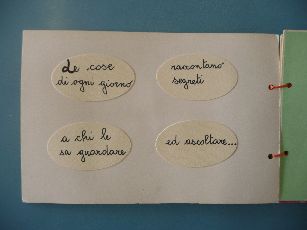 Le cose
di ogni giorno
raccontano
segreti
a chi le
sa guardare
ed ascoltare...